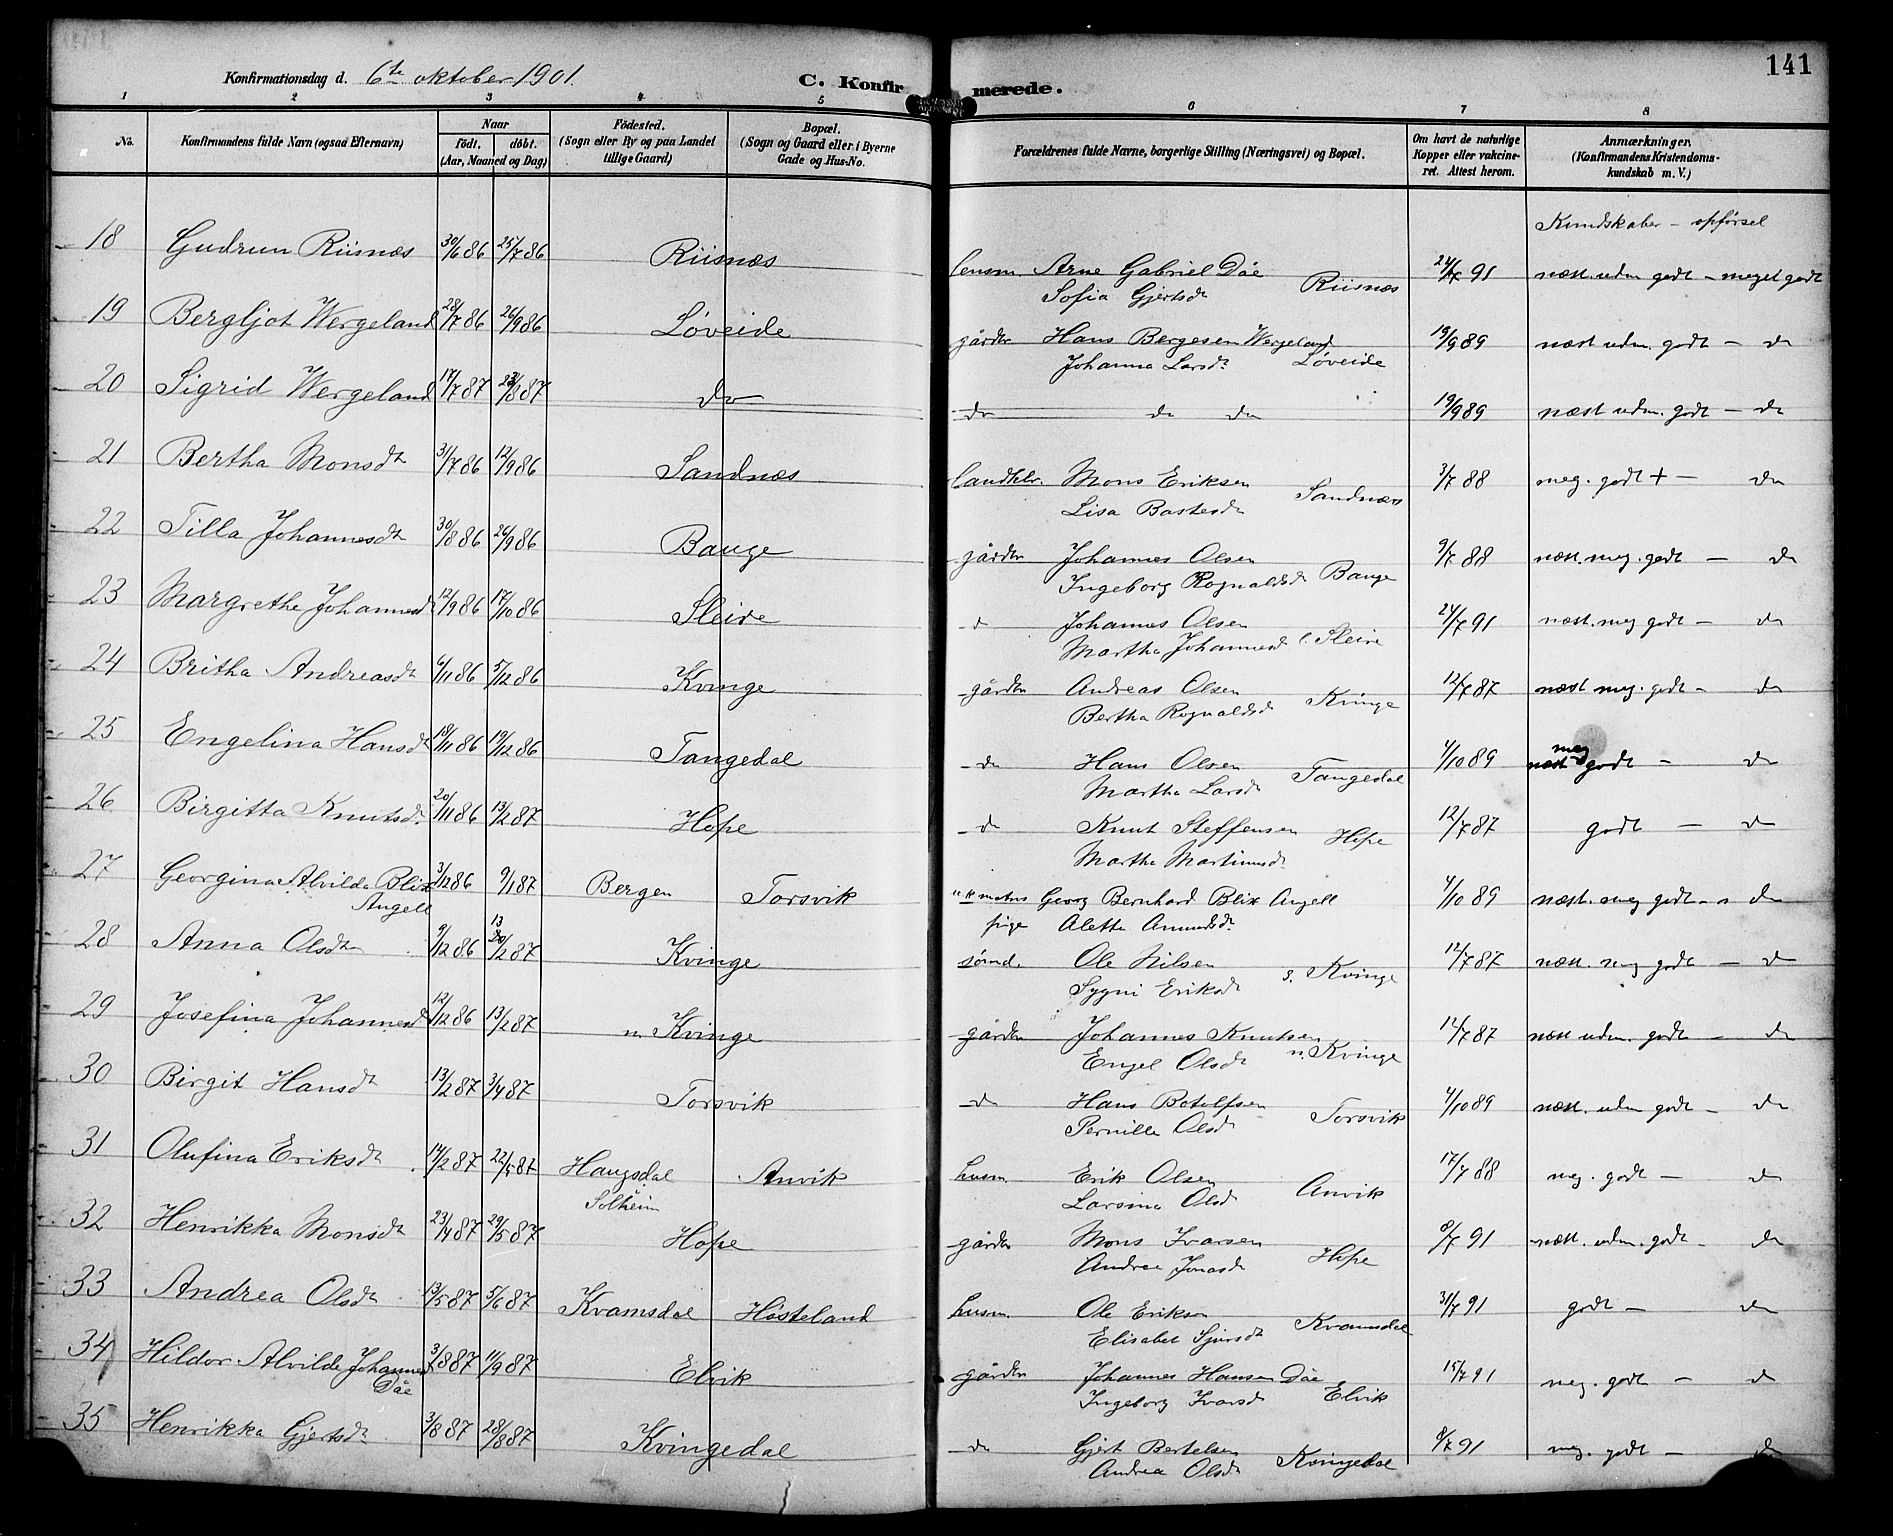 141
Konfirmationsdag d. 6te oktober 1901.
C. Konfirmerede.
1 2 3 4 5 6 7 8
No.
Konfirmandens fulde Navn (ogsaa Efternavn)
Naar
født. døbt.
(Aar, Maaned og Dag)
Fødested.
(Sogn eller By og paa Landet
tillige Gaard)
Bopæl.
(Sogn og Gaard eller i Byerne
Gade og Hus-No.
Forældrenes fulde Navne, borgerlige Stilling (Næringsvei) og Bopæl.
Om havt de naturlige
Kopper eller vakcine-
ret. Attest herom.
Anmærkninger.
(Konfirmandens Kristendoms-
kundskab m. V.)
Kundskaber - opførsel
18 Gudrun Riisnæs 30/6 86 25/7 86 Riisnæs lensm Arne Gabriel Dåe 24/7 91 næst. udm godt - meget godt
Sofia Gjertsdt Riisnæs
19 Bergljot Wergeland 28/7 86 26/9 86 Løveide gårdbr Hans Bergesen Wergeland 19/9 89 næst udm. godt - do
Johanna Larsdt Løveide
20 Sigrid Wergeland 17/7 87 /8 87 do do do do 19/9 89 næst udm. godt - do
21 Bertha Monsdt 31/7 86 12/9 86 Sandnæs landhdr. Mons Eriksen 3/7 88 meg. godt + - do
Lisa Bastesdt Sandnæs
22 Tilla Johannesdt 30/8 86 26/9 86 Bauge gårdbr Johannes Olsen 9/7 88 næst. meg. godt - do
Ingeborg Rognaldsdt Bauge
23 Margrethe Johannesdt 12/9 86 17/10 86 Sleire d Johannes Olsen 24/7 91 næst. meg godt - do
Martha Johannesdt Sleire
24 Britha Andreasdt 6/11 86 5/12 86 Kvinge gårdbr Andreas Olsen 12/7 87 næst meg. godt - do
Bertha Rognaldsdt Kvinge
25 Engelina Hansdt 18/11 86 19/12 86 Tangedal do Hans Olsen 4/10 89 næst meg godt - do
Martha Larsdt Tangedal
26 Birgitta Knutsdt. 20/11 86 13/2 87 Hope d Knut Steffensen 12/7 87 godt - do
Martha Martinusdt Hope
27 Georgina Alvilda Blix 3/12 86 9/1 87 Bergen Torsvik matros Georg Bernhard Blix Angell 4/10 89 næst. meg godt - do
Angell pige Alette Amundsdt.
28 Anna Olsdt 9/12 86 13/2 87 Kvinge sømd. Ole Nilsen 12/7 87 næst. meg godt - do
Sygni Eriksdt s. Kvinge
29 Josefina Johannesdt 12/12 86 13/2 87 n. Kvinge gårdbr Johannes Knutsen 12/7 87 næst udm. godt - do
Engel Olsdt n. Kvinge
30 Birgit Hansdt 13/2 87 3/4 87 Torsvik do Hans Botolfsen 4/10 89 næst. udm godt - do
Pernille Olsdt Torsvik
31 Olufina Eriksdt 14/2 87 22/5 87 Haugsdal Anvik husm Erik Olsen 17/7 88 meg. godt - do
Solheim Larsina Olsdt Anvik
32 Henrikka Monsdt 23/4 87 29/5 87 Hope gårdbr Mons Ivarsen 8/7 91 næst. udm. godt - do
Andrea Jonasdt Hope
33 Andrea Olsdt 13/5 87 5/6 87 Kvamsdal Høsteland husm. Ole Eriksen 31/7 91 godt - do
Elisabet Sjursdt Kvamsdal
34 Hildor Alvilde Johannesdt 3/8 87 11/9 87 Elvik gårdbr Johannes Hansen Dåe 15/7 91 meg. godt - d
Dåe Ingeborg Ivarsdt Elvik
35 Henrikka Gjertsdt 3/8 87 28/8 87 Kvingedal do Gjert Bertelsen 8/7 91 meg. godt - do
Andrea Olsdt Kvingedal